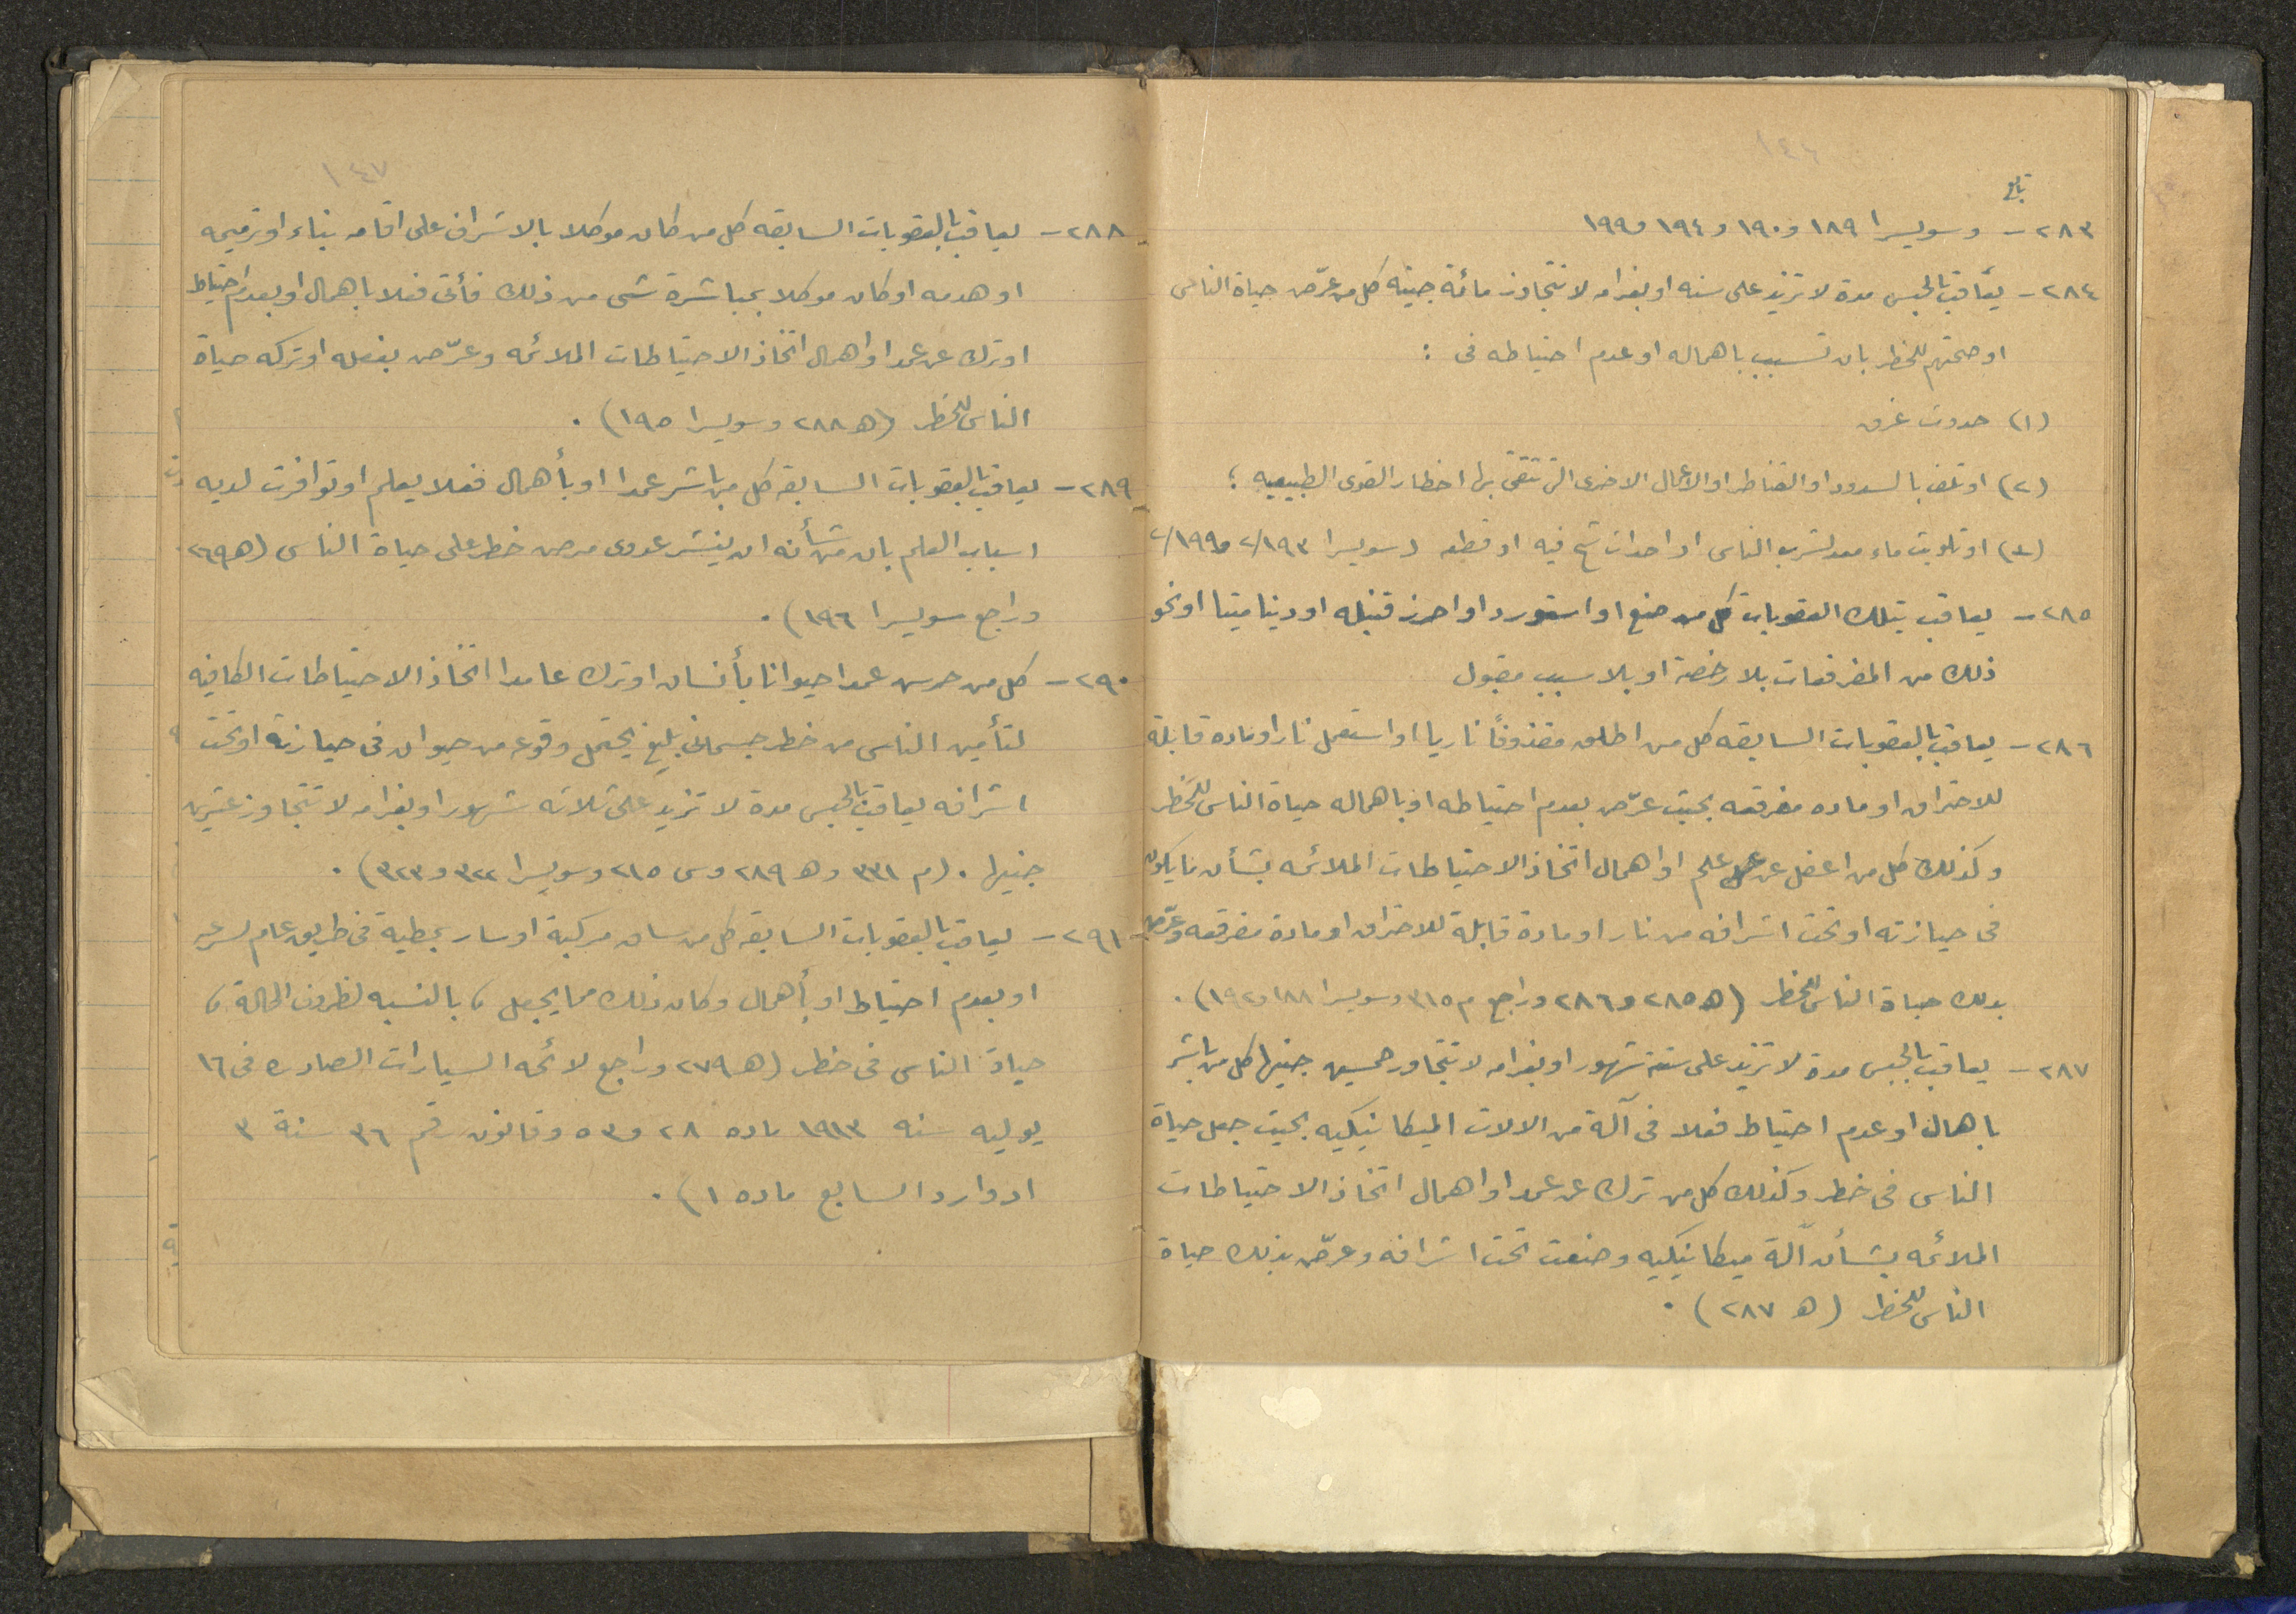 ١٤٦
تابع
٢٨٣ – وسويسرا ١٨٩ و١٩٠ و١٩٤ و١٩٩
٢٨٤ – يعاقب بالحبس مدة لا تزيد على سنه او بغرامه لا تتجاوز مائة جنيه كل من عرّض حياة الناس
او صحتهم للخطر بان تسبب باهماله او عدم احتياطه فى :
(١) حدوث غرق
(٢) او تلف بالسدود او القناطر او الاعمال الاخرى التى تتقى بها اخطار القوى الطبيعيه ؛
(٣) او تلويث ماء معد لشرب الناس او احداث شح فيه او قطعه (سويسرا ١٩٣/٢ و١٩٩/٢
٢٨٥ – يعاقب بتلك العقوبات كل من صنع او استورد او احرز قنبله او ديناميتا او نحو
ذلك من المفرقعات بلا رخصة او بلا سبب مقبول
٢٨٦ – يعاقب بالعقوبات السابقه كل من اطلق مقذوفًا ناريا او استعمل نارا او ماده قابلة
للاحتراق او ماده مفرقعه بحيث عرّض بعدم احتياطه او باهماله حياة الناس للخطر
وكذلك كل من اغفل عن علم او اهمال اتخاذ الاحتياطات الملائمه بشأن ما يكون
فى حيازته او تحت اشرافه من نار او مادة قابلة للاحتراق او مادة مفرقعه وعرّض
بذلك حياة الناس للخطر (هـ ٢٨٥ و٢٨٦ وراجع م ٣١٥ وسويسرا ١٨٨ و١٩٢) .
٢٨٧ – يعاقب بالحبس مدة لا تزيد على ستة شهور او بغرامه لا تتجاوز خمسين جنيها كل من باشر
باهمال او عدم احتياط فعلا فى آلة من الالات الميكانيكيه بحيث جعل حياة
الناس فى خطر وكذلك كل من ترك عن عمد او اهمال اتخاذ الاحتياطات
الملائمه بشأن آلة ميكانيكيه وضعت تحت اشرافه وعرّض بذلك حياة
الناس للخطر (هـ ٢٨٧) .
١٤٧
٢٨٨ – يعاقب بالعقوبات السابقه كل من كان موكلا بالاشراف على اقامه بناء او ترميمه
او هدمه او كان موكلا بمباشرة شى من ذلك فأتى فعلا باهمال او بعدم احتياط
او ترك عن عمد او اهمال اتخاذ الاحتياطات الملائمه وعرّض بفعله او تركه حياة
الناس للخطر (هـ ٢٨٨ وسويسرا ١٩٥) .
٢٨٩ – يعاقب بالعقوبات السابقه كل من باشر عمدا او بأهمال فعلا يعلم او توافرت لديه
اسباب العلم بان من شأنه ان ينشر عدوى مرض خطر على حياة الناس (هـ ٢٦٩
وراجع سويسرا ١٩٦) .
٢٩٠ – كل من حرس عمدا حيوانا بأنسان او ترك عامدا اتخاذ الاحتياطات الكافيه
لتأمين الناس من خطر جسمانى بليغ يحتمل وقوعه من حيوان فى حيازته او تحت
اشرافه يعاقب بالحبس مدة لا تزيد على ثلاثه شهور او بغرامه لا تتجاوز عشرين
جنيها . (م ٣٣١ وهـ ٢٨٩ وس ٢١٥ وسويسرا ٣٢٢ و٣٢٣) .
٢٩١ – يعاقب بالعقوبات السابقه كل من ساق مركبة او سار بمطية فى طريق عام بسرعه
او بعدم احتياط او بأهمال وكان ذلك مما يجعل ، بالنسبه لظروف الحالة ،
حياة الناس فى خطر (هـ ٢٧٩ وراجع لائحه السيارات الصادره فى ١٦
يوليه سنه ١٩١٣ ماده ٢٨ و٥٣ وقانون رقم ٣٦ سنة ٣
ادوارد السابع ماده ١) .